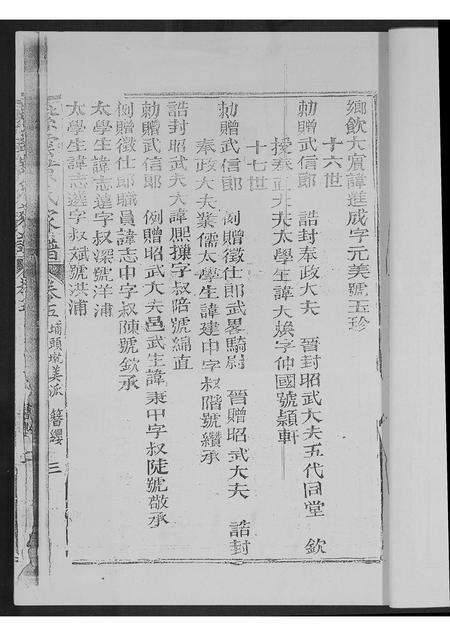 鄉飲大賓諱進成字元美號玉珍
十六世
勅贈武信郎 誥封奉政大夫 晉封昭武大夫五代同堂 欽
授奉直大夫太學生諱大煥字仲國號穎軒
十七世
勅贈武信郎 例贈徵仕郎武畧騎尉 晉贈昭武大夫 誥封
奉政大夫業儒太學生諱建中字叔階號纘承
誥封昭武大夫諱熙攘字叔陪號綿直
勅贈武信郎 例贈昭武大夫邑武生諱秉中字叔陡號敬承
例贈徵仕郎職員諱志中字叔陳號欽承
太學生諱志達字叔深號洋浦
太學生諱志達字叔斌號洪浦
氏家譜 卷五 墩美派 簪纓 三